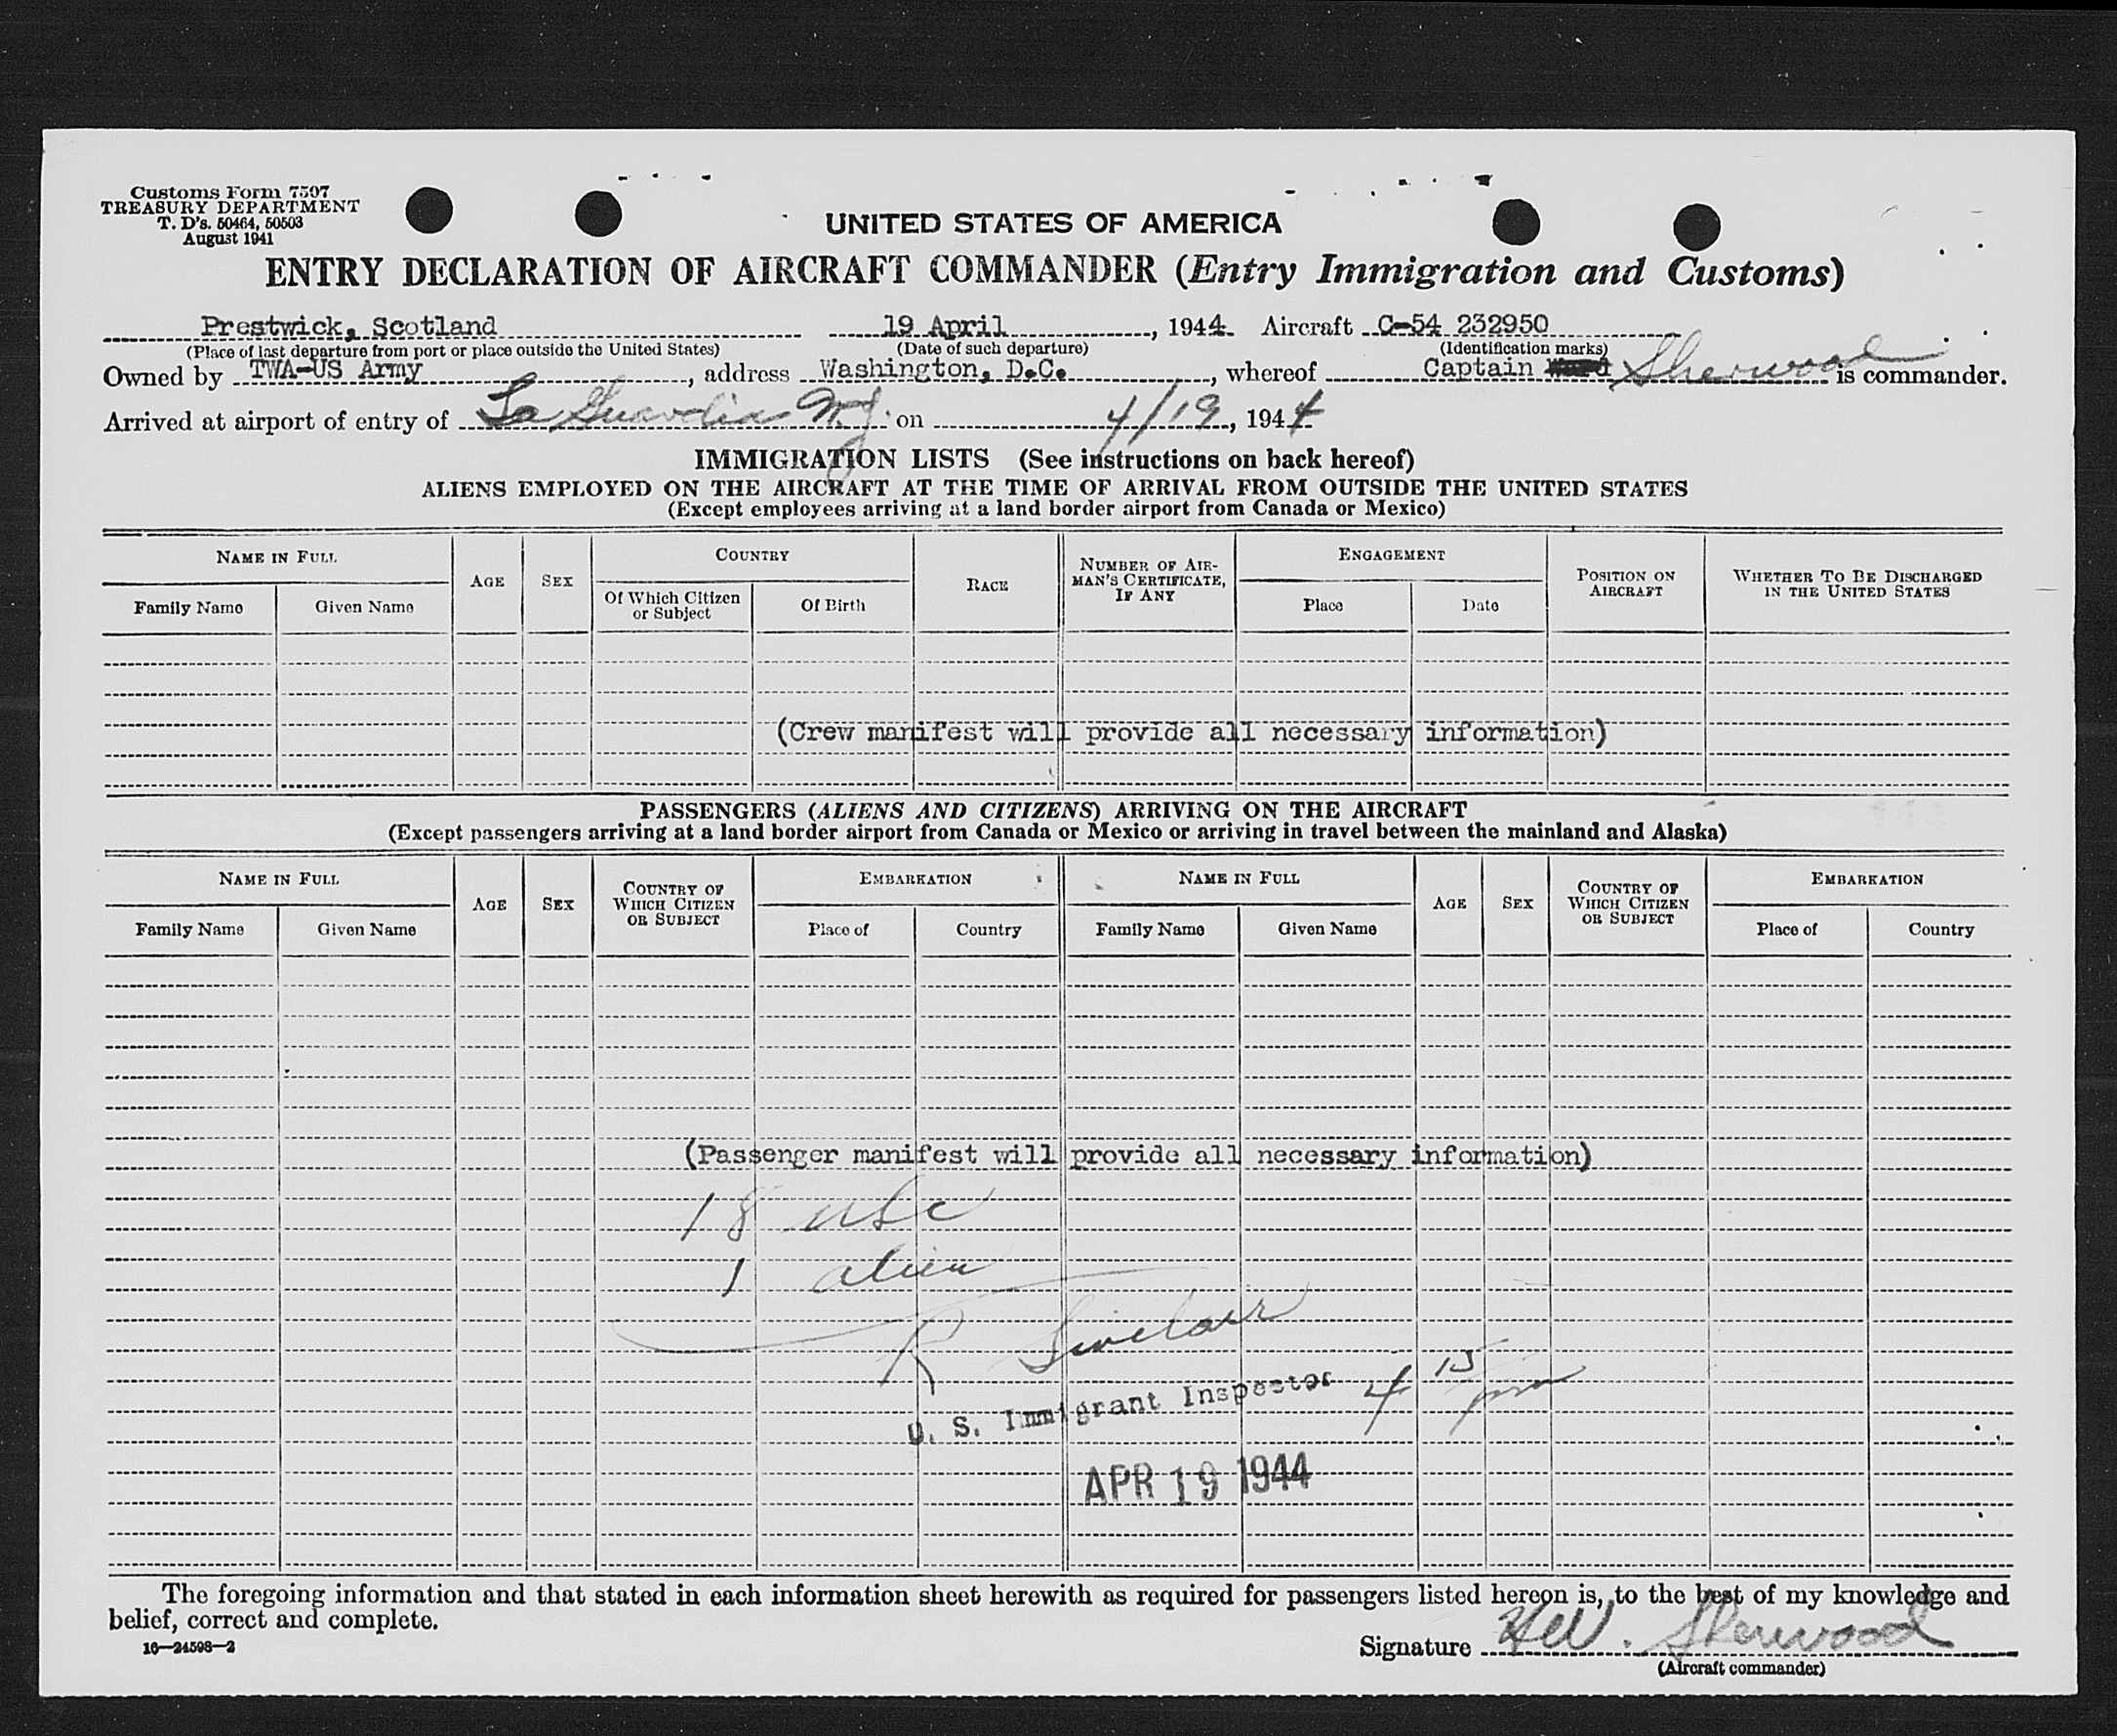 Customs Form 7507
TREASURY DEPARTMENT
T. D's. 50464, 50503
August 1941
UNITED STATES OF AMERICA
ENTRY DECLARATION OF AIRCRAFT COMMANDER (Entry Immigration and Customs)
Prestwick, Scotland 19 April, 1944 Aircraft C-54 232950
(Place of last departure from port or place outside the United States) (Date of such departure) (Identification marks)
Owned by TWA-US Army, address Washington, D.C., whereof Captain Sherwood is commander.
Arrived at airport of entry of La Guardia on 4/19, 1944
IMMIGRATION LISTS (See instructions on back hereof)
ALIENS EMPLOYED ON THE AIRCRAFT AT THE TIME OF ARRIVAL FROM OUTSIDE THE UNITED STATES
(Except employees arriving at a land border airport from Canada or Mexico)
NAME IN FULL AGE SEX COUNTRY RACE NUMBER OF AIRMAN'S CERTIFICATE, IF ANY ENGAGEMENT POSITION ON AIRCRAFT WHETHER TO BE DISCHARGED IN THE UNITED STATES
Family Name Given Name Of Which Citizen or Subject Of Birth Place Date
(Crew manifest will provide all necessary information)
PASSENGERS (ALIENS AND CITIZENS) ARRIVING ON THE AIRCRAFT
(Except passengers arriving at a land border airport from Canada or Mexico or arriving in travel between the mainland and Alaska)
NAME IN FULL AGE SEX COUNTRY OF WHICH CITIZEN OR SUBJECT EMBARKATION NAME IN FULL AGE SEX COUNTRY OF WHICH CITIZEN OR SUBJECT EMBARKATION
Family Name Given Name Place of Country Family Name Given Name Place of Country
(Passenger manifest will provide all necessary information)
18 usc
1 alien
R Sinclair
U. S. Immigrant Inspector 4 15 pm
APR 19 1944
The foregoing information and that stated in each information sheet herewith as required for passengers listed hereon is, to the best of my knowledge and
belief, correct and complete.
16—24598-2
Signature HW. Sherwood
(Aircraft commander)